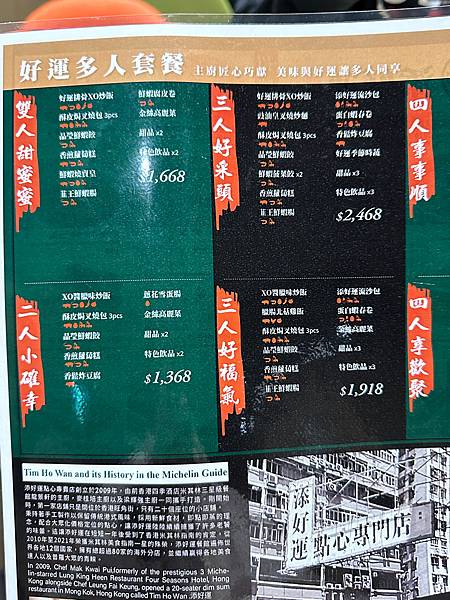 好運多人套餐 主廚匠心巧獻 美味與好運讓多人同享
雙人甜蜜蜜
好運排骨XO炒飯 鮮蝦腐皮卷
酥皮焗叉燒包 3pcs 金絲高麗菜
晶瑩鮮蝦餃 甜品 x2
香煎蘿蔔糕 特色飲品 x2
鮮蝦燒賣皇
韮王鮮蝦腸
$1,668
三人好采頭
好運排骨XO炒飯 添好運流沙包
豉油皇叉燒炒麵 蛋白蝦春卷
酥皮焗叉燒包 3pcs 香鬆炸豆腐
晶瑩鮮蝦餃 好運季節時蔬
鮮蝦菠菜餃 x2 甜品 x3
香煎蘿蔔糕 特色飲品 x3
韮王鮮蝦腸
$2,468
四人事事順
二人小確幸
XO醬臘味炒飯 蔥花雪蛋腸
酥皮焗叉燒包 3pcs 金絲高麗菜
晶瑩鮮蝦餃 甜品 x2
香煎蘿蔔糕 特色飲品 x2
香鬆炸豆腐
$1,368
三人好福氣
XO醬臘味炒飯 添好運流沙包
臘腸北菇雞飯 蛋白蝦春卷
酥皮焗叉燒包 3pcs 金絲高麗菜
晶瑩鮮蝦餃 甜品 x3
香煎蘿蔔糕 特色飲品 x3
韮王鮮蝦腸
$1,918
四人享歡聚
Tim Ho Wan and its History in the Michelin Guide
添好運點心專賣店創立於2009年，由前香港四季酒店米其林三星級餐
館龍景軒的主廚，麥桂培主廚以及梁輝強主廚一同攜手打造。剛開始
時，第一家店舖只是間位於香港旺角街，只有二十個座位的小店舖。
秉持著手工製作以保留傳統港式風味，採用新鮮食材，即點即蒸的理
念，配合大眾化價格定位的點心，讓添好運陸續擄獲了許多老饕
的味蕾。添好運在短短一年後受到了香港米其林指南的肯定，從
2010年至2021年榮獲米其林美食指南一星的殊榮。添好運餐館遍佈世
界各地12個國家，擁有總超過80家的海外分店，並繼續贏得各地美食
達人以及普羅大眾的青睞。
In 2009, Chef Mak Kwai Pui,formerly of the prestigious 3 Miche-
lin-starred Lung King Heen Restaurant Four Seasons Hotel, Hong
Kong alongside Chef Leung Fai Keung, opened a 20-seater dim sum
restaurant in Mong Kok, Hong Kong called Tim Ho Wan 添好運
添好運點心專門店